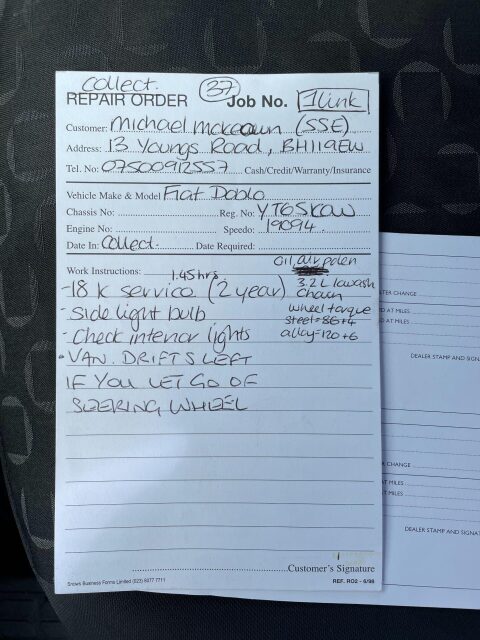 Collect. 37
REPAIR ORDER Job No. 1link
Customer: Michael mckeown (SSE)
Address: 13 Youngs Road, BH119EW
Tel. No: 07500912557 Cash/Credit/Warranty/Insurance
Vehicle Make & Model Fiat Doblo
Chassis No: Reg. No: YT65KOW
Engine No: Speedo: 19094
Date In: Collect. Date Required:
Oil, air, polen
Work Instructions: 1.45 hrs
- 18 K service (2 year) 3.2 L lowash
chain
- Side light bulb wheel torque
steel = 86+4
- Check interior lights alloy = 120+6
• VAN. DRIFTS LEFT
IF YOU LET GO OF
STEERING WHEEL
Customer's Signature
Snows Business Forms Limited (023) 8077 7711 REF. RO2 - 6/98
CHANGE
AT MILES
DEALER STAMP AND SIGN
CHANGE
AT MILES
AT MILES
DEALER STAMP AND SIGNAT